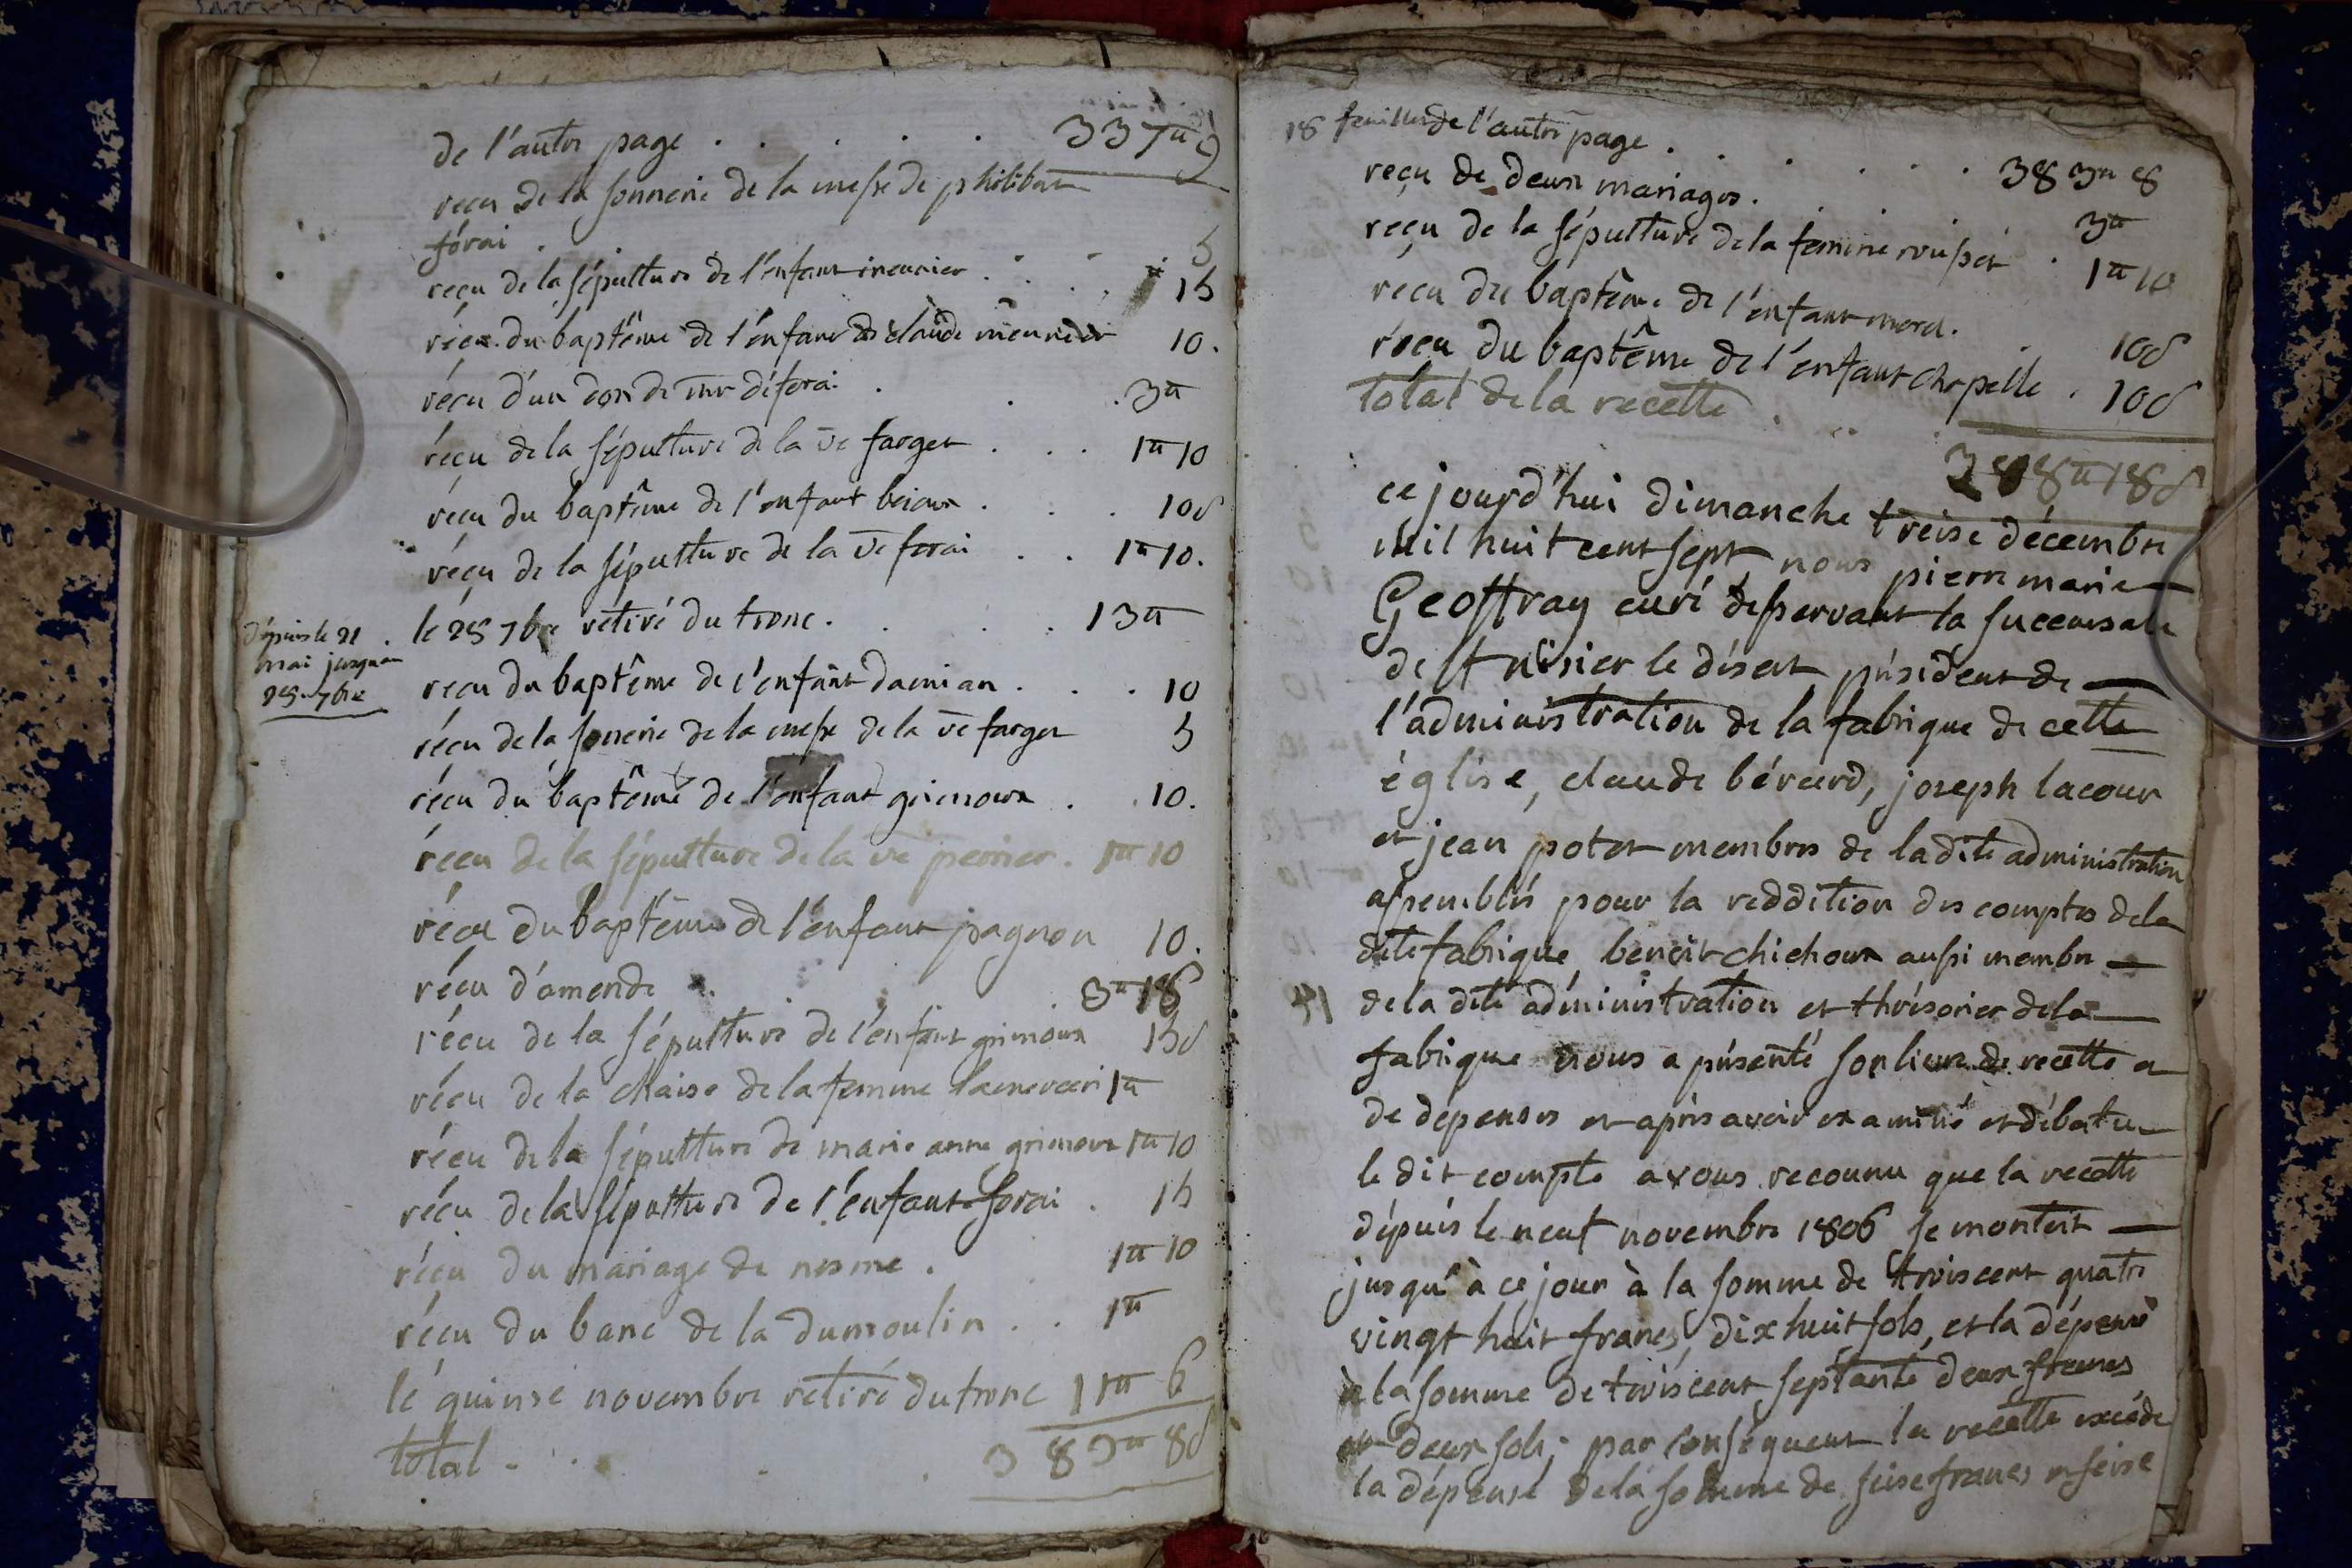 de l'autre page . . . . . 337tt 9
reçu de la sonnerie de la messe de philibert
forai . . . . . 5
reçu de la sépulture de l'enfant meunier . . . . 15
réçu du baptême de l'enfant de claude meunier 10.
réçu d'un don de mr diforai . . . 3tt
réçu de la sépulture de la ve farget . . . 1tt 10
réçu du baptême de l'enfant . . . 10s
réçu de la sépulture de la ve forai . . 1tt 10.
dépuis le 21
mai jusqu'au
25 7bre
le 25 7bre retiré du tronc . . . 13tt
recu du baptême de l'enfant damian . . . 10
réçu de la sonerie de la messe de la ve farget 5
réçu du baptême de l'enfant grienoux . . 10.
réçu de la sépulture de la ve perrier . 1tt 10
réçu du baptême de l'enfant pagnon 10.
réçu d'amende . . . 3tt 18
réçu de la sépulture de l'enfant grienoux 15s
réçu de la chaise de la femme 1tt
réçu de la sépulture de marie anne grienoux 1tt 10
réçu de la sépulture de l'enfant forai . 15
réçu du mariage de nesme . 1tt 10
réçu du banc de la dumoulin . . 1tt
le quinse novembre retiré du tronc 11tt 6
total . . . . 383tt 8s
18 feuillet de l'autre page . . . . . . 383tt 8
reçu de deux mariages . . . 3tt
reçu de la sépulture de la femme . 1tt 10
réçu du baptême de l'enfant morel . . 10s
reçu du baptême de l'enfant chapelle . 10s
total de la recette . . 388tt 18s
ce jourd'hui dimanche treise décembre
mil huit cent sept nous pierre marie
Geoffray curé desservant la succursale
de st nisier le désert président de
l'administration de la fabrique de cette
église, claude bérard, joseph lacour
et jean potet membres de la dite administration
assemblés pour la reddition des comptes de la
dite fabrique benoit chichoux aussi membre
de la dite administration et thrésorier de la
fabrique nous a présenté son livre de recette et
de dépenses et après avoir examiné et débatu
le dit compte avons reconnu que la recette
dépuis le neuf novembre 1806 se montoit
jusqu'à ce jour à la somme de trois cent quatre
vingt huit francs, dix huit sols, et la dépense
à la somme de trois cent septante deux francs
deux sols; par conséquent la recette excéde
la dépense de la somme de seise francs et seise